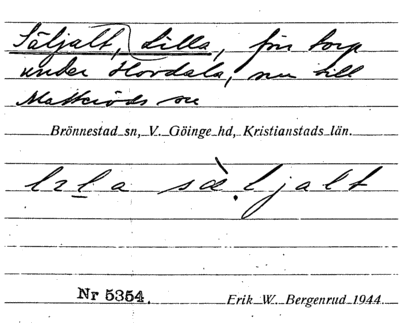 Säljalt, Lilla, förr torp
under Hovdala, nu till
Matteröds sn
Brönnestad sn, V. Göinge hd, Kristianstads län.
lɪla sàljalt
Nr 5354.
Erik W. Bergenrud 1944.